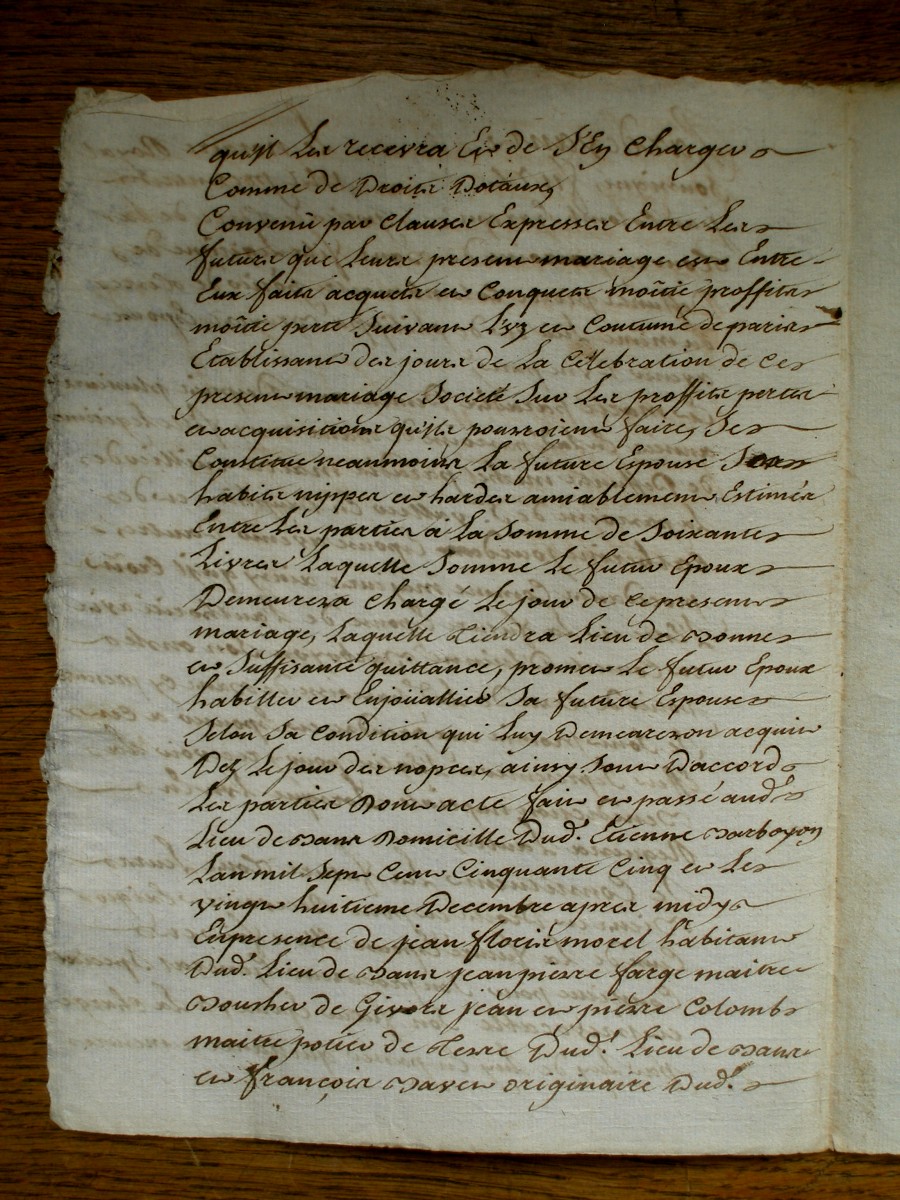 qu'jl Les recevra Et de S'En Charger
Comme de Droits Dotaux,
Convenû par clauses Expresses Entre Les
futurs que Leurs present mariage est Entre
Eux faits acquets et Conquets moîtié proffits
moîtié perte Suivant L'vz et Coutume de paris
Etablissant des jours de La Célébration de ce
present mariage Societé Sur Les proffits pertes
et acquisitions qu'jls pourroient faire, Se
Constitue neanmoins La future Epouse Ses
habits nippes et hardes amiablement Estimés
Entre Les parties à La Somme de Soixante
Livres Laquelle Somme Le futur Epoux
Demeurera Chargé Le jour de ce present
mariage, Laquelle Tiendra Lieu de Bonne
et Suffisante quittance, promet Le futur Epoux
habiller et Enjoüaller Sa future Epouse
Selon Sa Condition qui Luy Demeureront acquis
Dez Le jour des nopces, ainsy Sont D'accord
Les parties Dont acte fait et passé aud.
Lieu de Bans Domicille Dud. Etienne Barboyon
L'an mil Sept Cent Cinquante Cinq et Le
vingt huitieme Decembre apres midy
En presence de jean floris morel habitant
Dud. Lieu de Bans jean pierre farge maitre
Boucher de Givors jean et pierre Colomb
maitre potier de Terre Dud. Lieu de Bans
et françois originaire Dud.